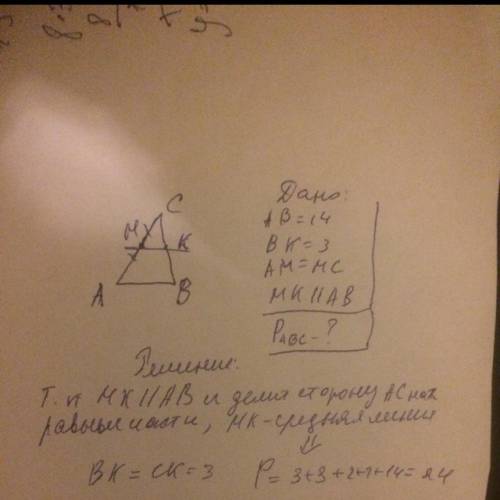 C
M
K
A
B
Дано:
AB=14
BK=3
AM=MC
MK||AB
P ABC - ?
Решение:
Т. к MK||AB и делит сторону AC на
равные части, MK-средняя линия
⇓
BK=CK=3
P=3+3+2+2+14=24